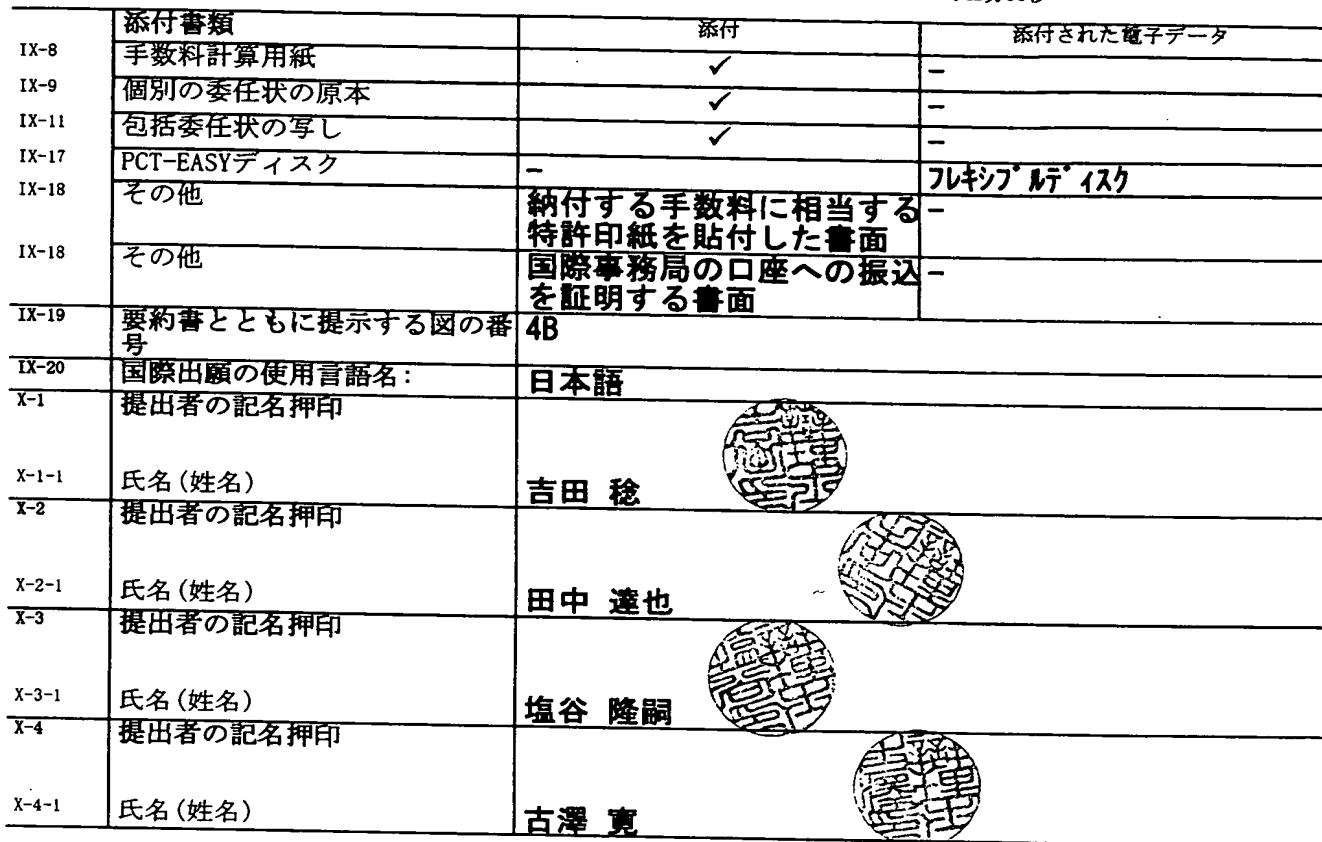 添付書類 添付 添付された電子データ
IX-8 手数料計算用紙 ✓ -
IX-9 個別の委任状の原本 ✓ -
IX-11 包括委任状の写し ✓ -
IX-17 PCT-EASYディスク - フレキシブルディスク
IX-18 その他 納付する手数料に相当する -
特許印紙を貼付した書面
IX-18 その他 国際事務局の口座への振込 -
を証明する書面
IX-19 要約書とともに提示する図の番 4B
号
IX-20 国際出願の使用言語名: 日本語
X-1 提出者の記名押印
X-1-1 氏名(姓名) 吉田 稔
X-2 提出者の記名押印
X-2-1 氏名(姓名) 田中 達也
X-3 提出者の記名押印
X-3-1 氏名(姓名) 塩谷 隆嗣
X-4 提出者の記名押印
X-4-1 氏名(姓名) 古澤 寛